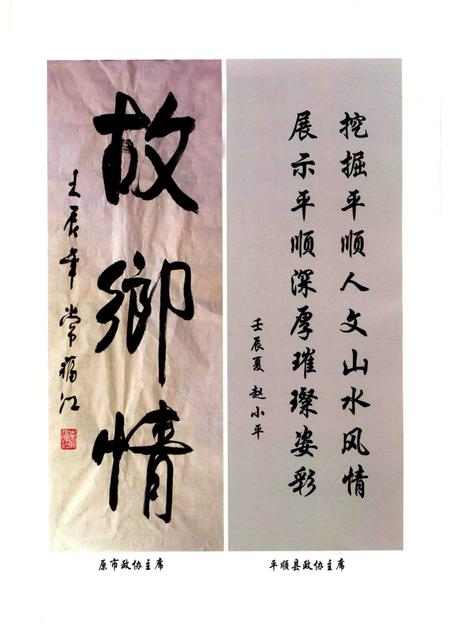 故鄉情
壬辰年 常福江
原市政协主席
挖掘平顺人文山水风情
展示平顺深厚璀璨姿彩
壬辰夏 赵小平
平顺县政协主席